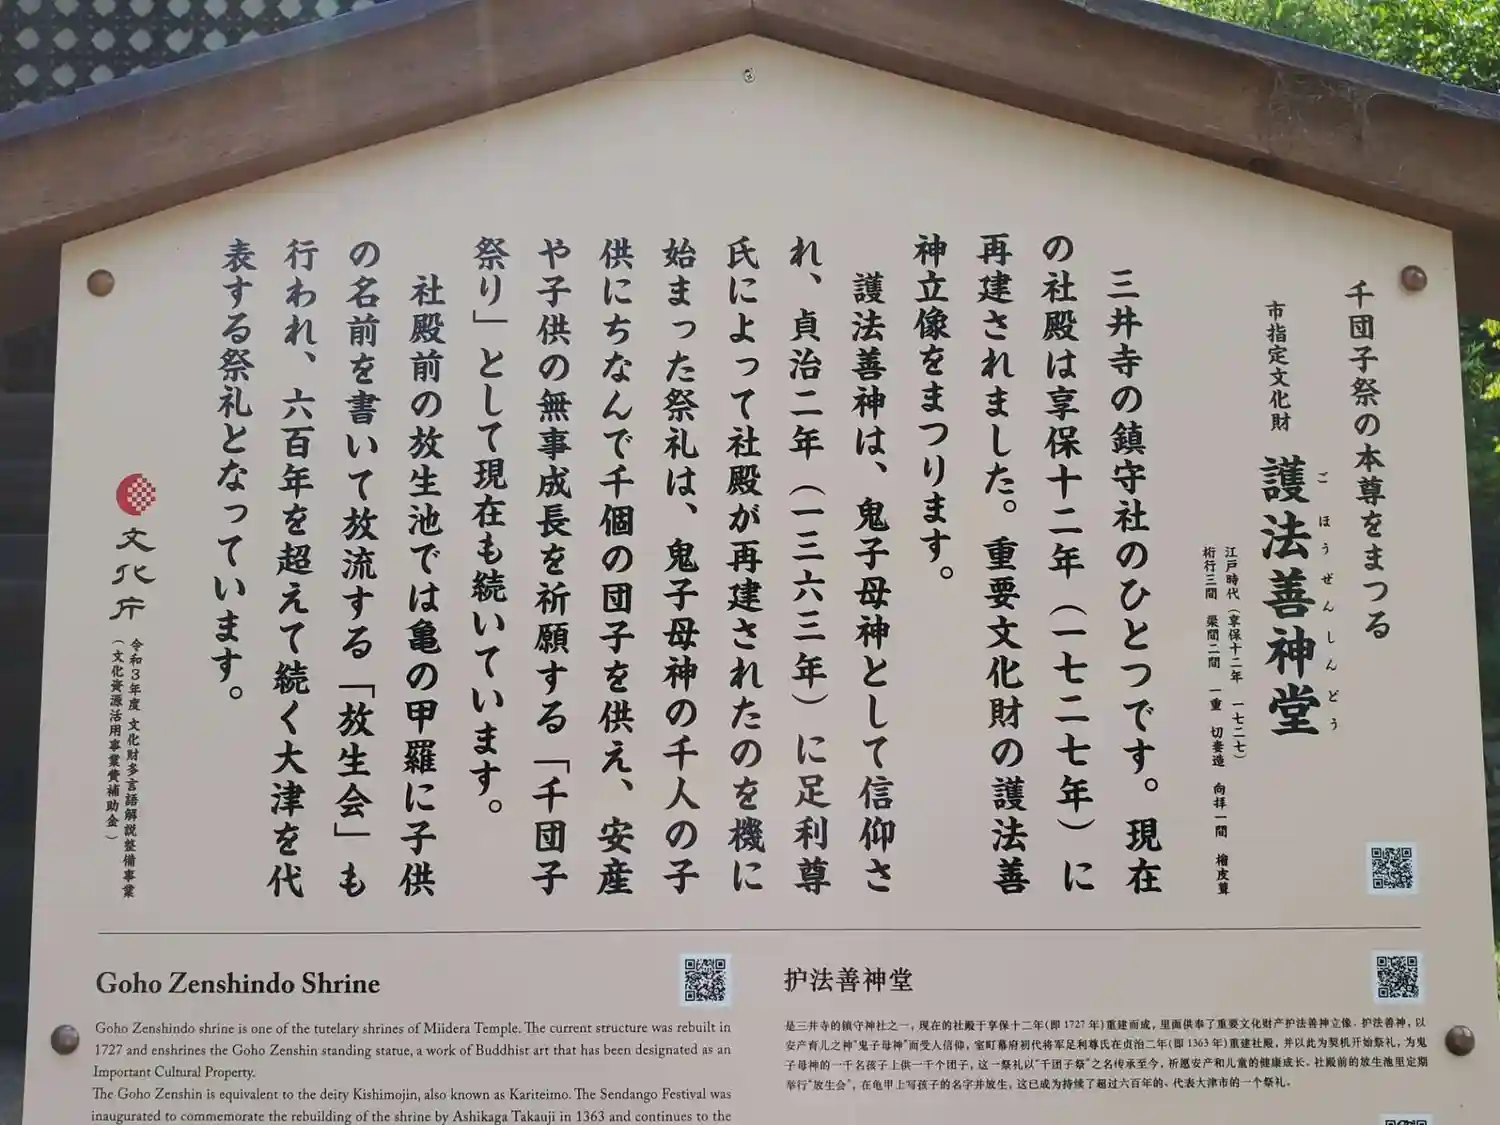 千団子祭の本尊をまつる
市指定文化財 護法善神堂
ごほうぜんしんどう
江戸時代（享保十二年 一七二七）
桁行三間 梁間二間 一重 切妻造 向拝一間 檜皮葺
三井寺の鎮守社のひとつです。現在
の社殿は享保十二年（一七二七年）に
再建されました。重要文化財の護法善
神立像をまつります。
護法善神は、鬼子母神として信仰さ
れ、貞治二年（一三六三年）に足利尊
氏によって社殿が再建されたのを機に
始まった祭礼は、鬼子母神の千人の子
供にちなんで千個の団子を供え、安産
や子供の無事成長を祈願する「千団子
祭り」として現在も続いています。
社殿前の放生池では亀の甲羅に子供
の名前を書いて放流する「放生会」も
行われ、六百年を超えて続く大津を代
表する祭礼となっています。
文化庁
令和3年度 文化財多言語解説整備事業
（文化資源活用事業費補助金）
Goho Zenshindo Shrine
Goho Zenshindo shrine is one of the tutelary shrines of Miidera Temple. The current structure was rebuilt in
1727 and enshrines the Goho Zenshin standing statue, a work of Buddhist art that has been designated as an
Important Cultural Property.
The Goho Zenshin is equivalent to the deity Kishimojin, also known as Kariteimo. The Sendango Festival was
inaugurated to commemorate the rebuilding of the shrine by Ashikaga Takauji in 1363 and continues to the
护法善神堂
是三井寺的镇守神社之一，现在的社殿于享保十二年(即 1727 年)重建而成，里面供奉了重要文化财产护法善神立像。护法善神，以
安产育儿之神"鬼子母神"而受人信仰，室町幕府初代将军足利尊氏在贞治二年(即 1363 年)重建社殿，并以此为契机开始祭礼，为鬼
子母神的一千名孩子上供一千个团子，这一祭礼以"千团子祭"之名传承至今，祈愿安产和儿童的健康成长。社殿前的放生池里定期
举行"放生会"，在龟甲上写孩子的名字并放生，这已成为持续了超过六百年的、代表大津市的一个祭礼。